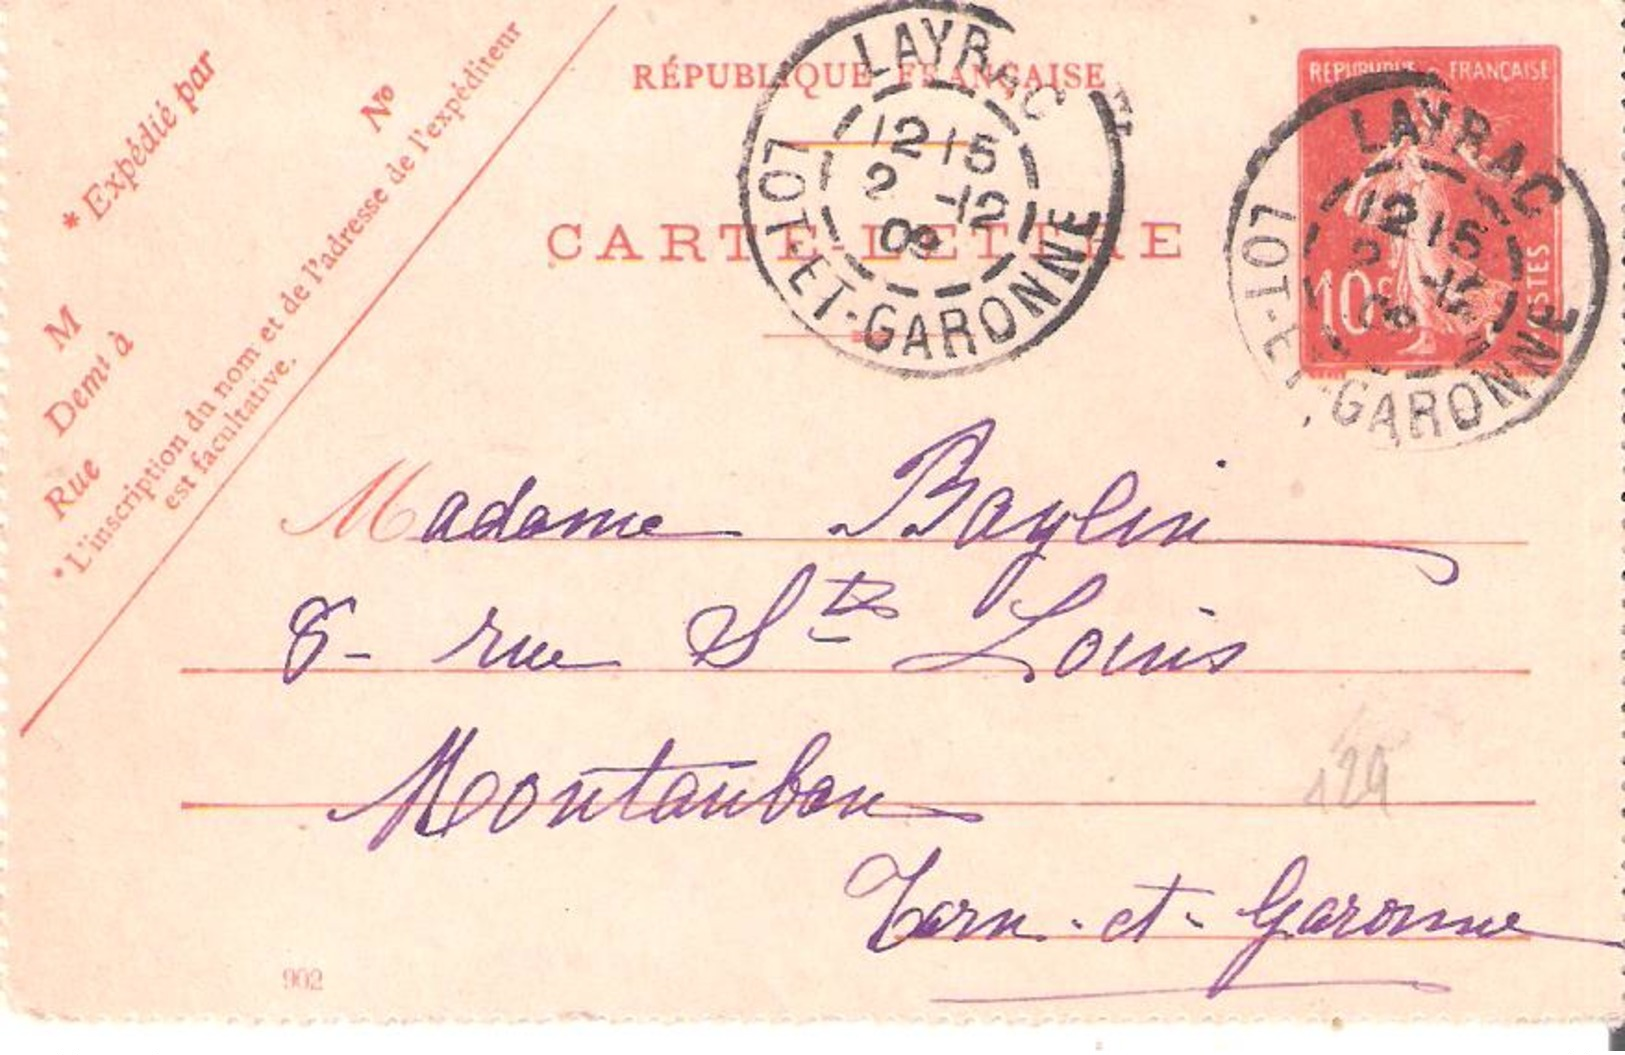 * Expédié par
N°
M
Demt à
Rue
* L'inscription du nom et de l'adresse de l'expéditeur
est facultative.
RÉPUBLIQUE FRANÇAISE
CARTE-LETTRE
LAYRAC
12 15
2 -12
09
LOT-ET-GARONNE
REPUBLIQUE FRANÇAISE
10c
POSTES
LAYRAC
12 15
2 -12
09
LOT-ET-GARONNE
Madame Baylin
8- rue Ste Louis
Montauban
Tarn-et-Garonne
129
902